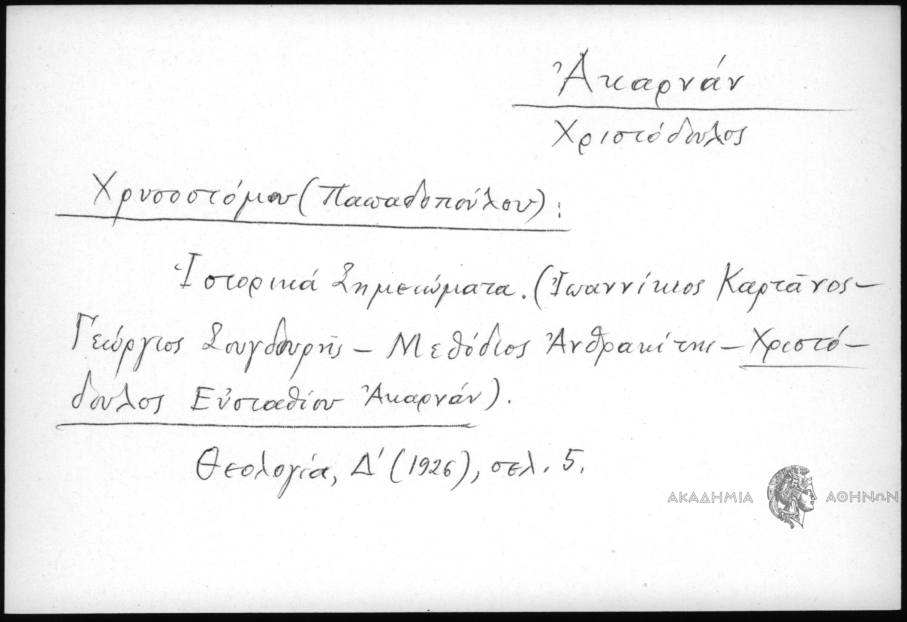 Ἀκαρνάν
Χριστόδουλος
Χρυσοστόμου (Παπαδοπούλου):
Ἱστορικά Σημειώματα. (Ἰωαννίκιος Καρτᾶνος –
Γεώργιος Σουγδουρῆς – Μεθόδιος Ἀνθρακίτης – Χριστό-
δουλος Εὐσταθίου Ἀκαρνάν).
Θεολογία, Δ' (1926), σελ. 5.
ΑΚΑΔΗΜΙΑ ΑΘΗΝΩΝ